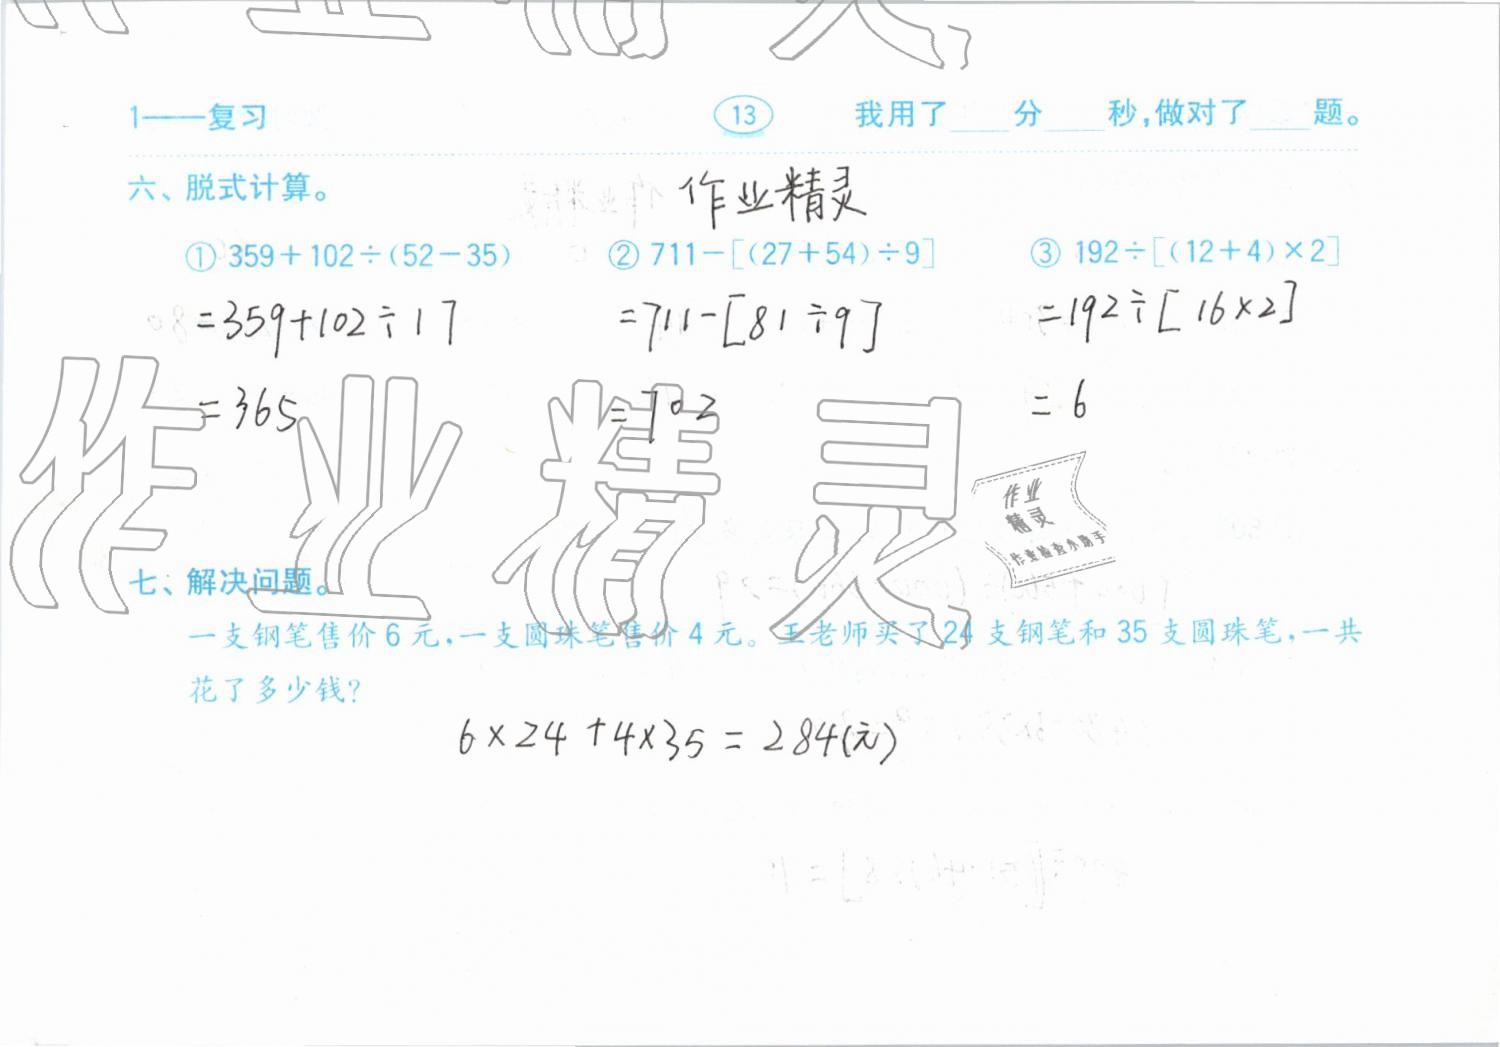 1——复习 13 我用了____分____秒,做对了____题。
六、脱式计算。 作业精灵
① 359+102÷(52-35) ② 711-[(27+54)÷9] ③ 192÷[(12+4)×2]
=359+102÷17 =711-[81÷9] =192÷[16×2]
=365 =702 =6
作业精灵
作业
精灵
作业检查小助手
七、解决问题。
一支钢笔售价6元,一支圆珠笔售价4元。王老师买了24支钢笔和35支圆珠笔,一共
花了多少钱?
6×24+4×35=284(元)